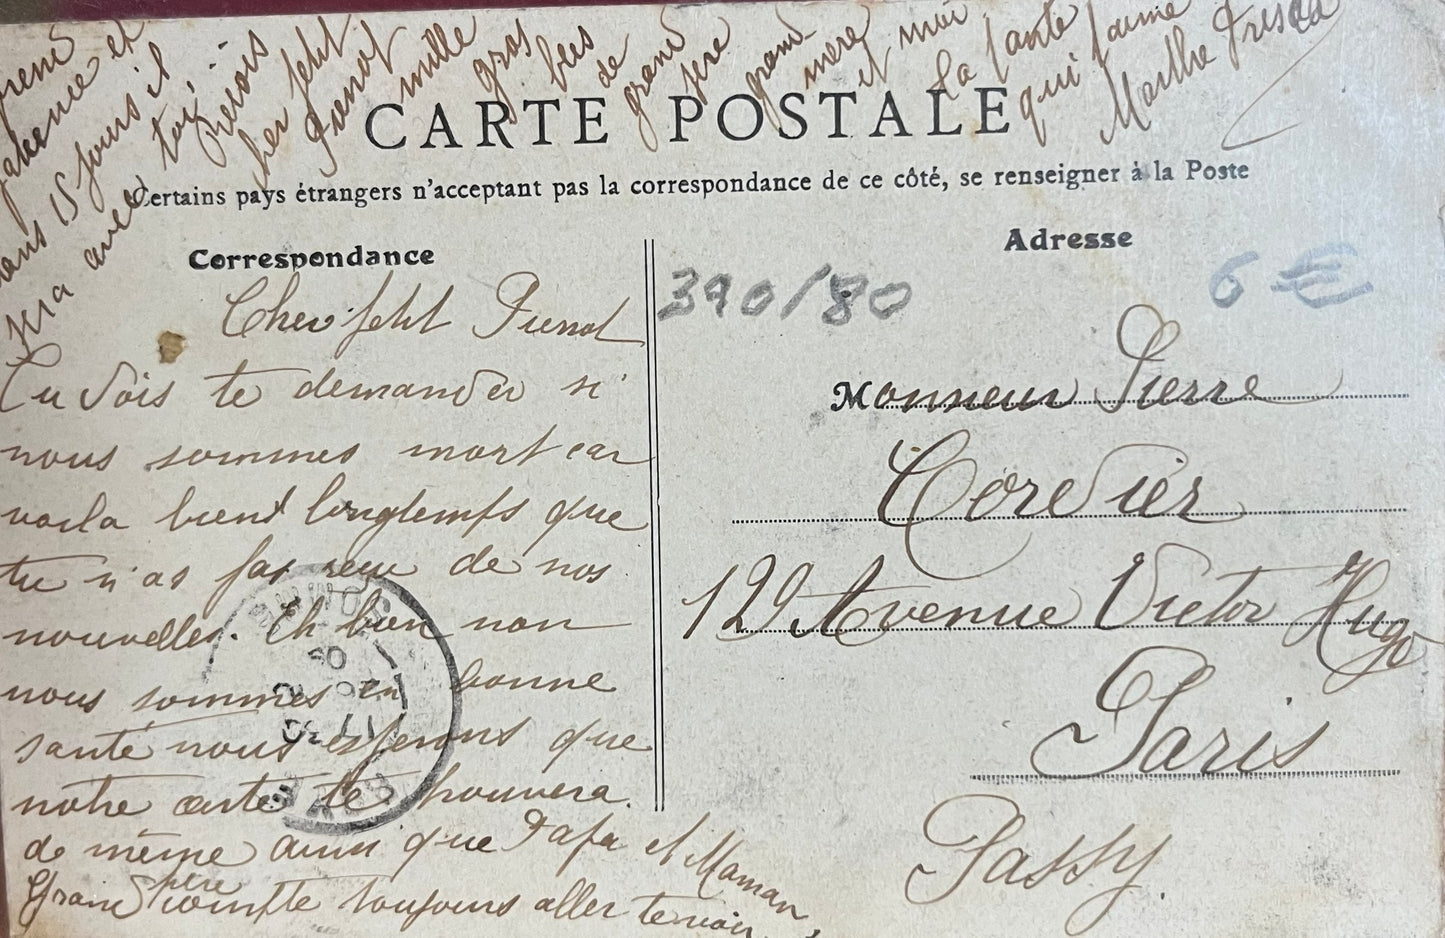 CARTE POSTALE
Certains pays étrangers n'acceptant pas la correspondance de ce côté, se renseigner à la Poste
Correspondance
Cher petit Pierrot
Tu dois te demander si
nous sommes mort car
voila bient longtemps que
tu n'as pas reçu de nos
nouvelles. Eh bien non
nous sommes en bonne
santé nous esperons que
notre carte te trouvera
de même ainsi que Papa et Maman
Grand père compte toujours aller te voir
prend
patience et
dans 15 jours il
sera avec toi.
reçois
cher petit
Pierrot
mille
gros
becs
de
grand
père
grand
mere
et moi
ta tante
qui t'aime
Marthe
Adresse
390/80
6 €
Monsieur Pierre
Cordier
129 Avenue Victor Hugo
Paris
Passy.
PARIS